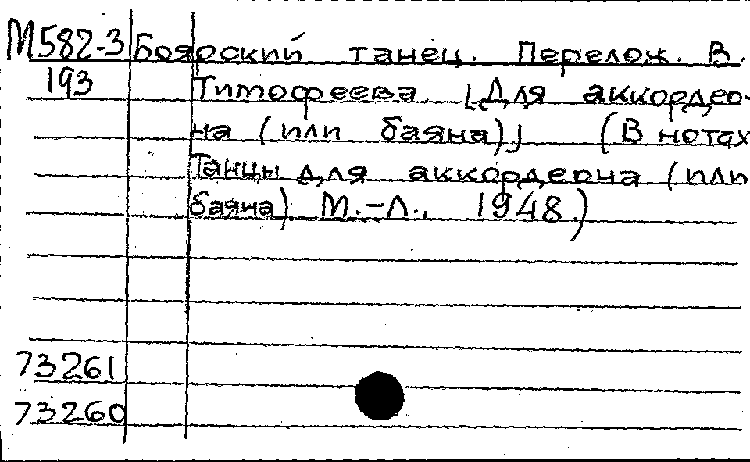 М582-3 Боярский танец. Перелож. В.
193 Тимофеева. [Для аккордео-
на (или баяна)] (В нотах
Танцы для аккордеона (или
баяна). М.-Л., 1948.)
73261
73260